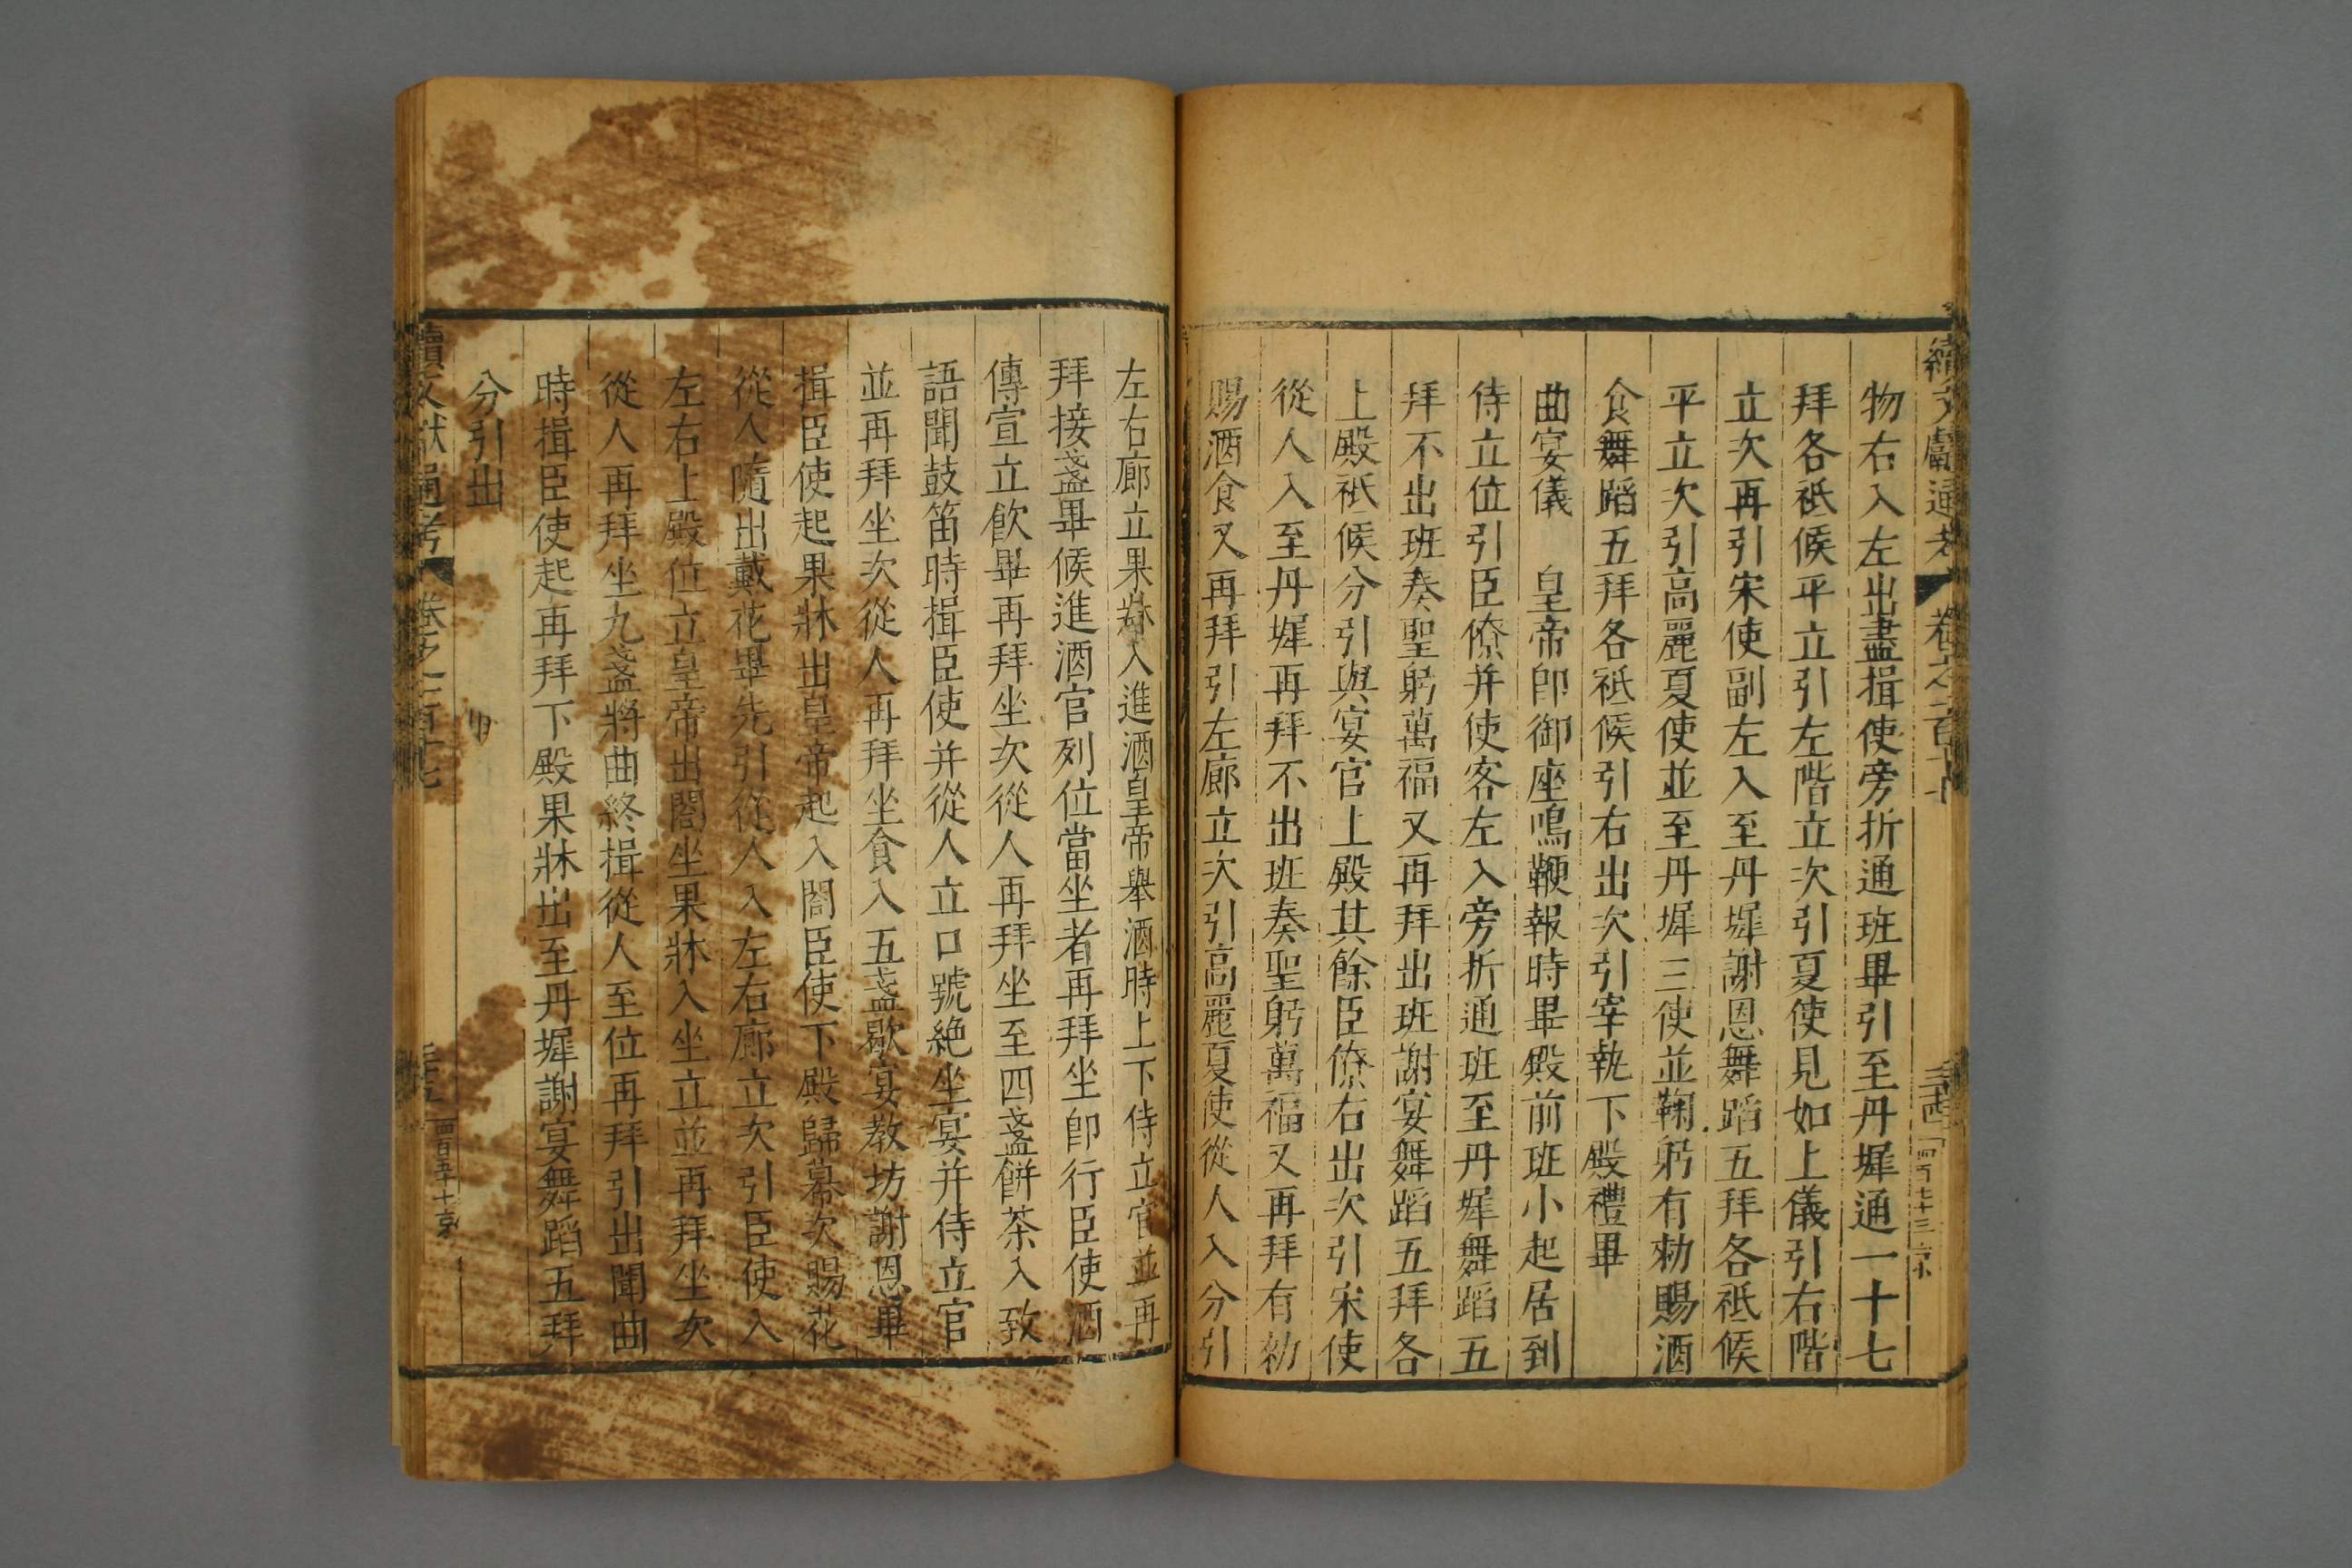 物右入左出盡揖使旁折通班畢引至丹墀通一十七
拜各祗候平立引左階立次引夏使見如上儀引右階
立次再引宋使副左入至丹墀謝恩舞蹈五拜各祗候
平立次引高麗夏使並至丹墀三使並鞠躬有勑賜酒
食舞蹈五拜各祗候引右出次引宰執下殿禮畢
曲宴儀　皇帝卽御座鳴鞭報時畢殿前班小起居到
侍立位引臣僚并使客左入旁折通班至丹墀舞蹈五
拜不出班奏聖躬萬福又再拜出班謝宴舞蹈五拜各
上殿祗候分引與宴官上殿其餘臣僚右出次引宋使
從人入至丹墀再拜不出班奏聖躬萬福又再拜有勑
賜酒食又再拜引左廊立次引高麗夏使從人入分引
左右廊立果牀入進酒皇帝舉酒時上下侍立官並再
拜接盞畢候進酒官列位當坐者再拜坐卽行臣使酒
傳宣立飲畢再拜坐次從人再拜坐至四盞餅茶入致
語聞鼓笛時揖臣使并從人立口號絶坐宴并侍立官
並再拜坐次從人再拜坐食入五盞歇宴敎坊謝恩畢
揖臣使起果牀出皇帝起入閤臣使下殿歸幕次賜花
從人隨出戴花畢先引從人入左右廊立次引臣使入
左右上殿位立皇帝出閤坐果牀入坐立並再拜坐次
從人再拜坐九盞將曲終揖從人至位再拜引出聞曲
時揖臣使起再拜下殿果牀出至丹墀謝宴舞蹈五拜
分引出
續文獻通考　卷之一百十七